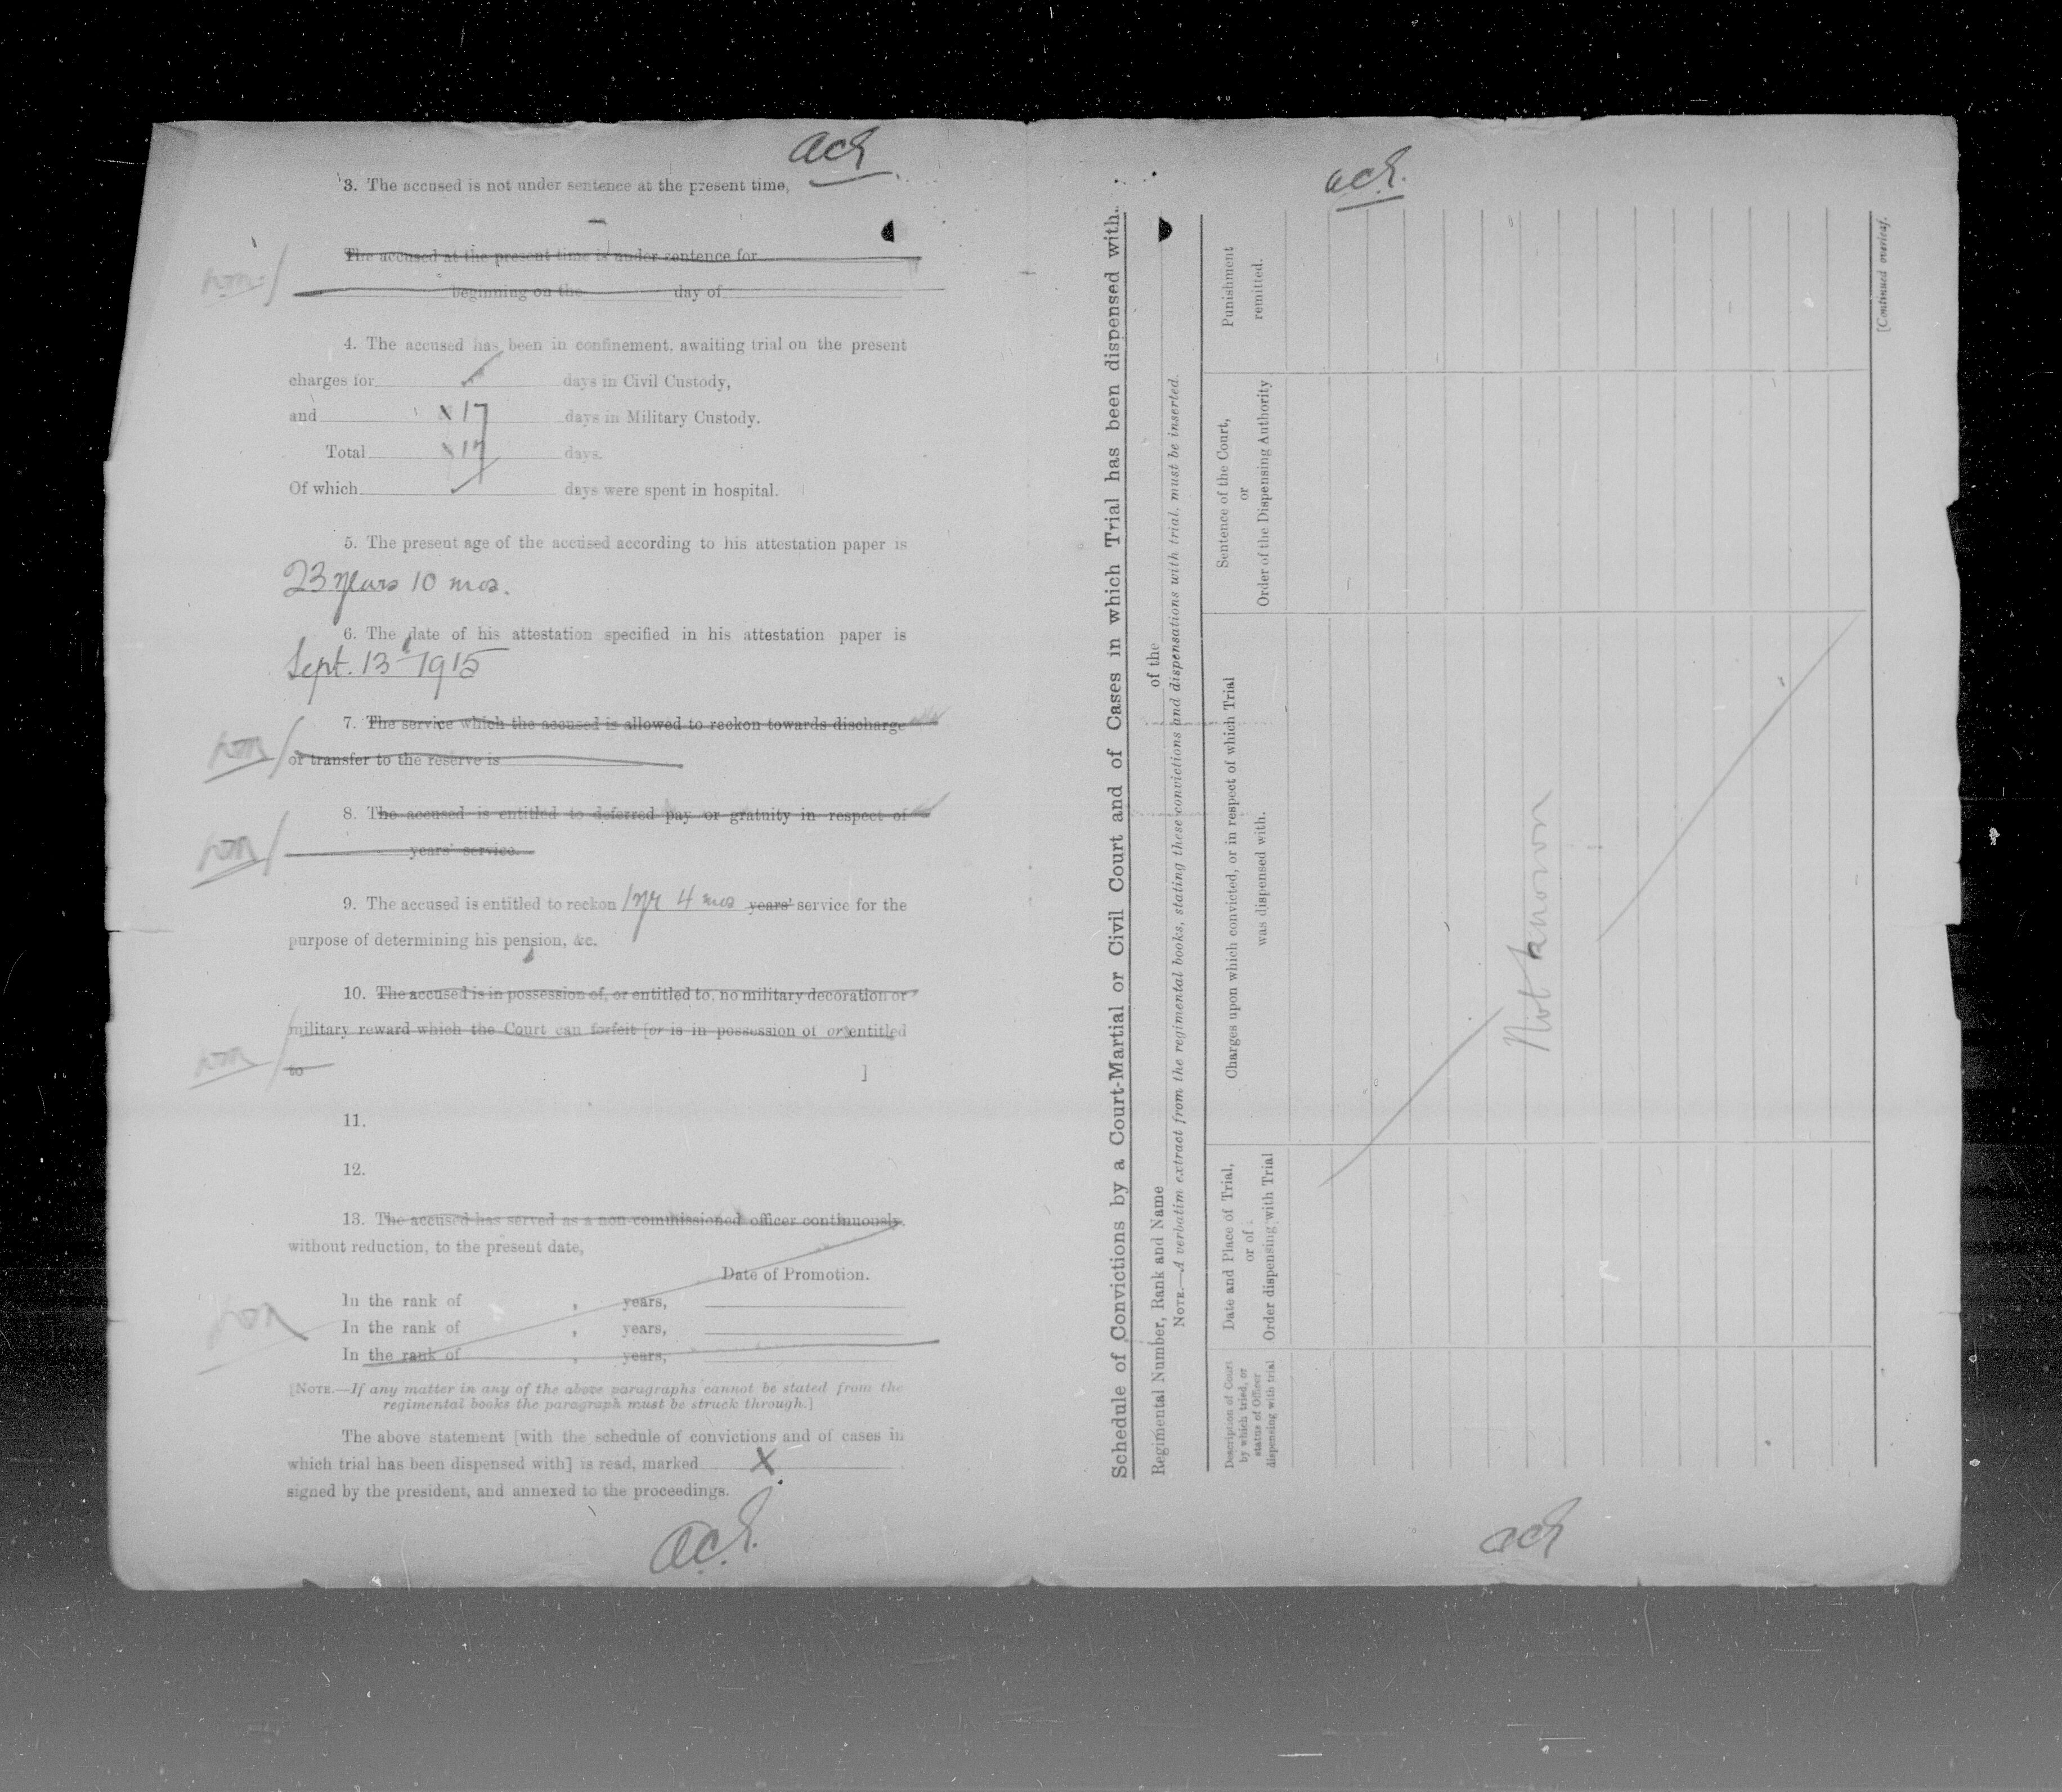 3. The accused is not under sentence at the present time,
The accused at the present time is under sentence for
beginning on the day of
4. The accused has been in confinement, awaiting trial on the present
charges for days in Civil Custody,
and 17 days in Military Custody.
Total 17 days.
Of which days were spent in hospital.
5. The present age of the accused according to his attestation paper is
23 years 10 mos.
6. The date of his attestation specified in his attestation paper is
Sept. 13 1915
7. The service which the accused is allowed to reckon towards discharge
or transfer to the reserve is
8. The accused is entitled to deferred pay or gratuity in respect of
years' service.
9. The accused is entitled to reckon 1 yr 4 mos years' service for the
purpose of determining his pension, &c.
10. The accused is in possession of, or entitled to, no military decoration or
military reward which the Court can forfeit [or is in possession of or entitled
to ]
11.
12.
13. The accused has served as a non-commissioned officer continuously,
without reduction, to the present date,
Date of Promotion.
In the rank of , years,
In the rank of , years,
In the rank of , years,
[NOTE.—If any matter in any of the above paragraphs cannot be stated from the
regimental books the paragraph must be struck through.]
The above statement [with the schedule of convictions and of cases in
which trial has been dispensed with] is read, marked X
signed by the president, and annexed to the proceedings.
Schedule of Convictions by a Court-Martial or Civil Court and of Cases in which Trial has been dispensed with.
Regimental Number, Rank and Name of the
NOTE.—A verbatim extract from the regimental books, stating these convictions and dispensations with trial, must be inserted.
Description of Court
by which tried, or
status of Officer
dispensing with trial
Date and Place of Trial,
or of
Order dispensing with Trial
Charges upon which convicted, or in respect of which Trial
was dispensed with.
Sentence of the Court,
or
Order of the Dispensing Authority
Punishment
remitted.
Not known
[Continued overleaf.